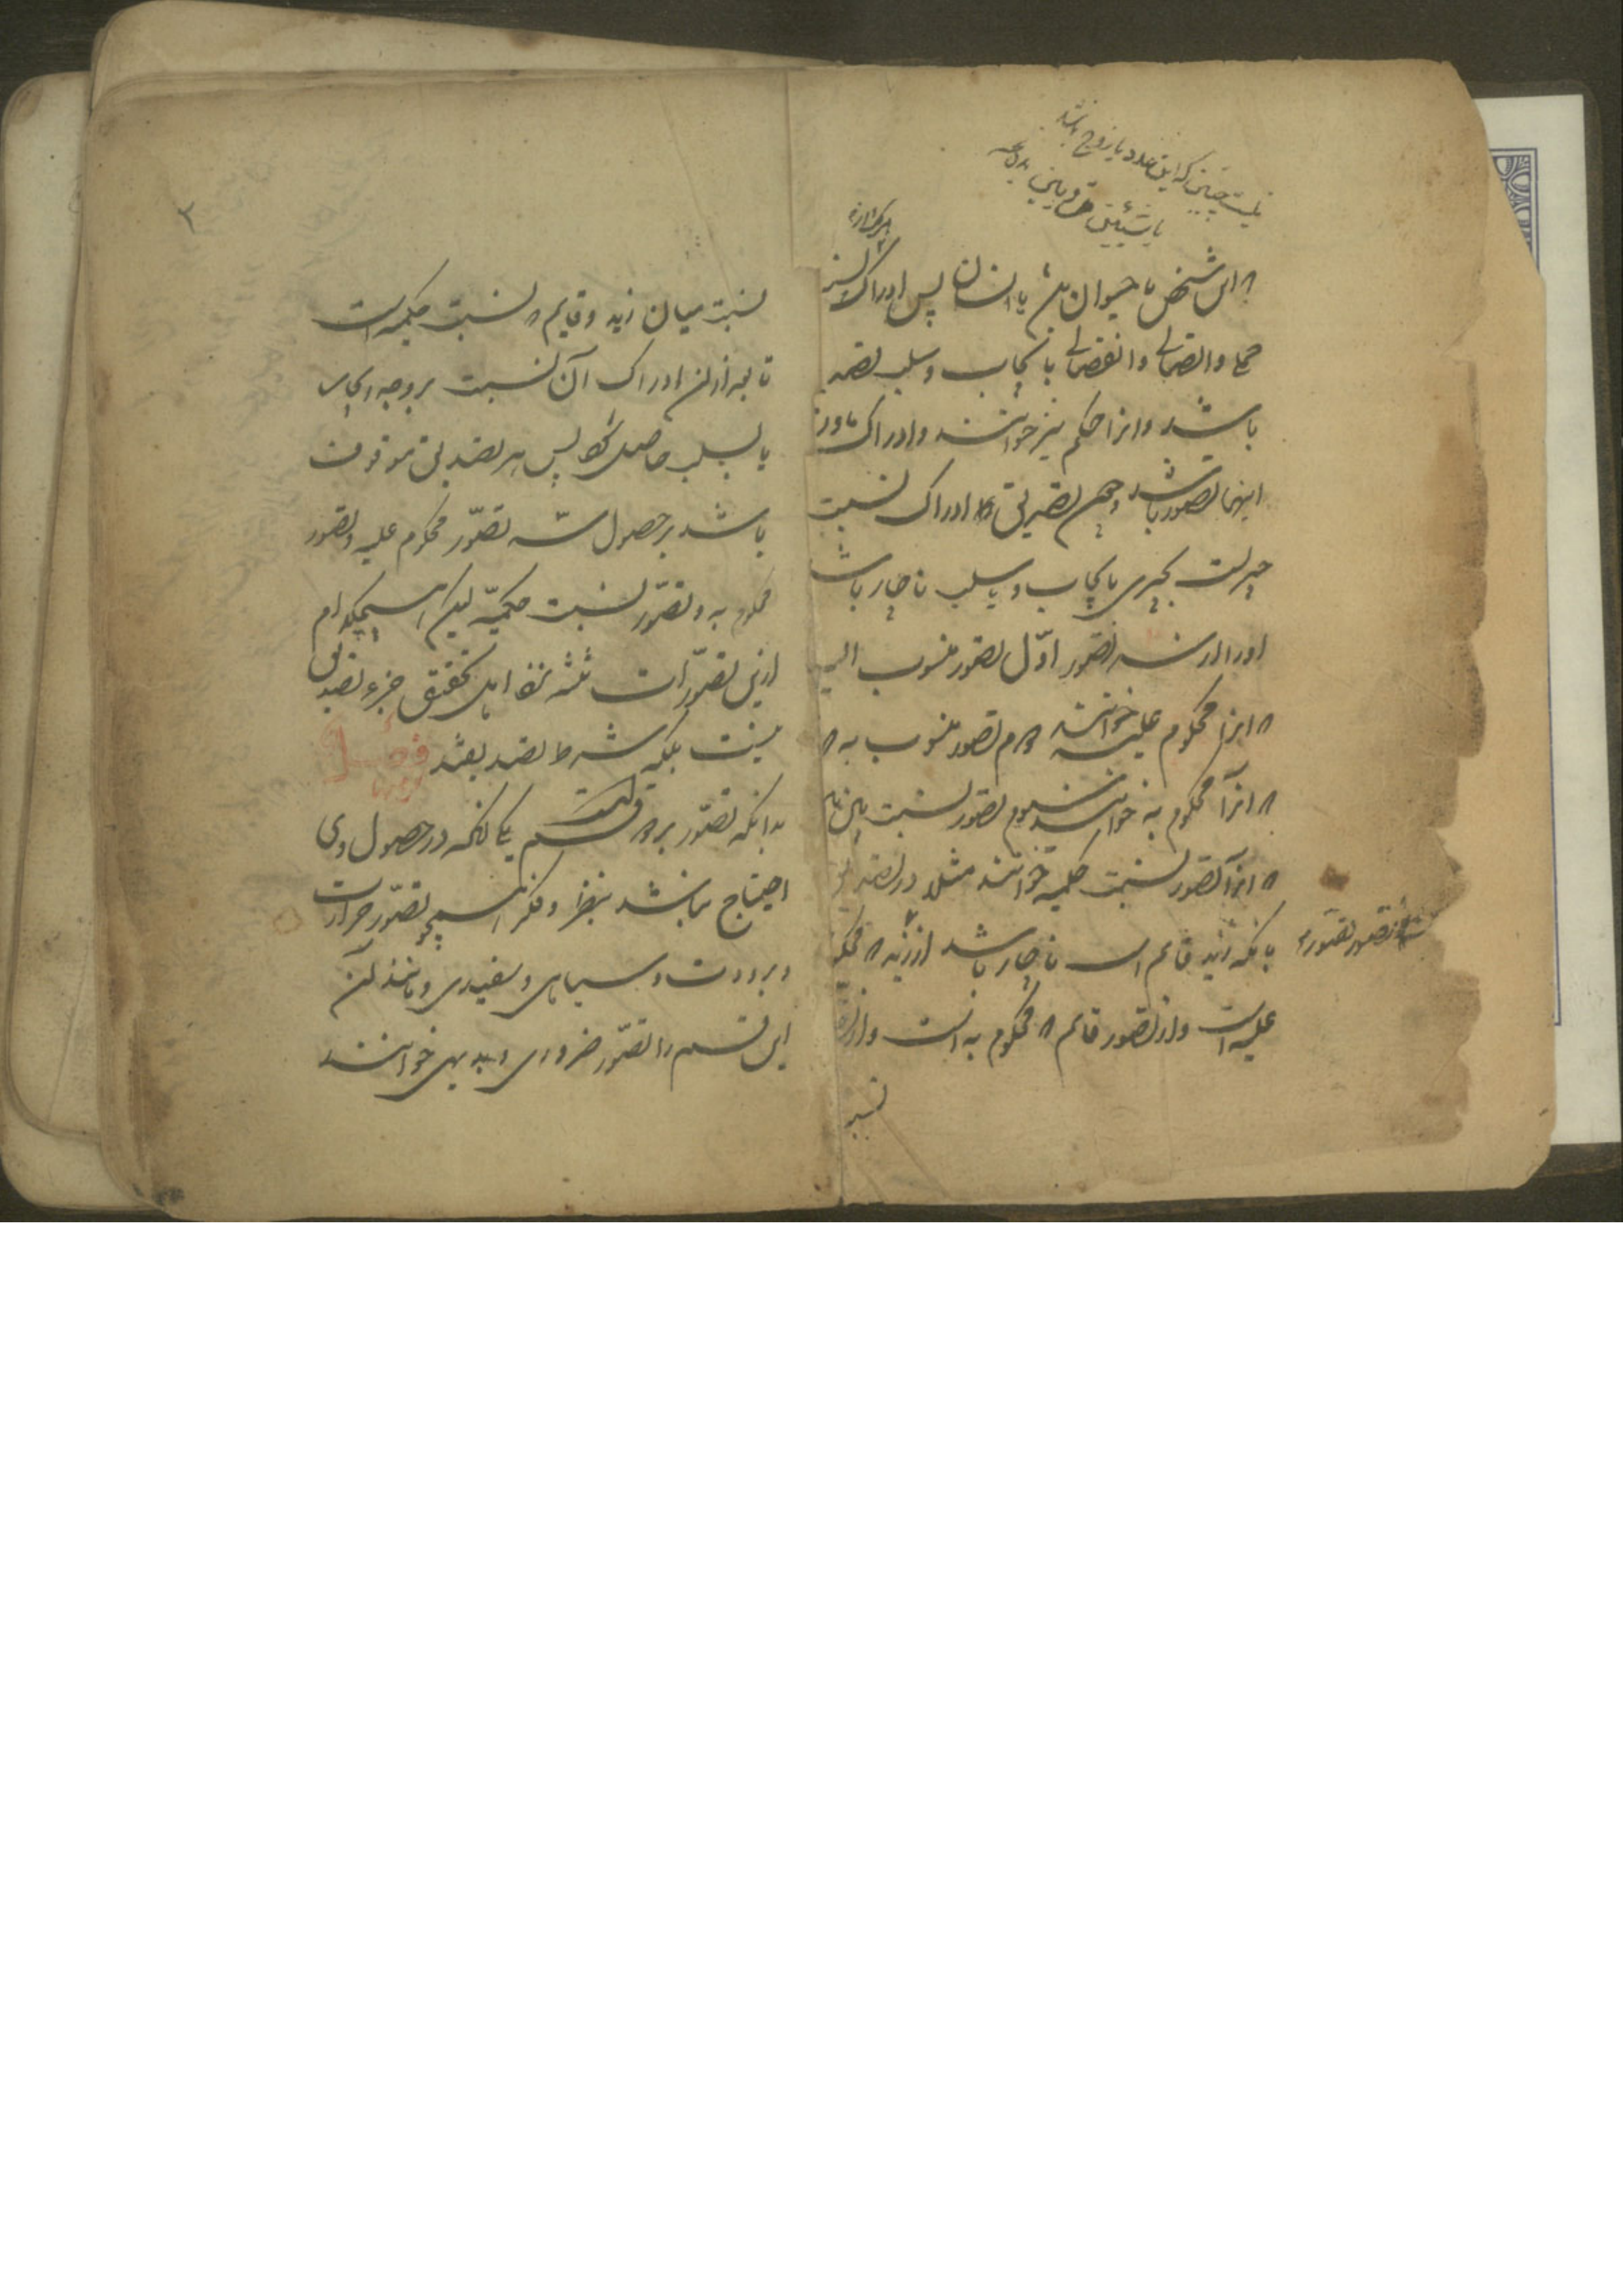 نیست چنین که این عدد یا زوج باشد
یا
که این شخص یا حیوان باشد یا انسان پس ادراک نسبت
حملی و اتصالی و انفصالی بایجاب و سلب تصدیق
باشد و انرا حکم نیز خوانند و ادراک ماورا
اینها تصور باشد و چون تصدیق ادراک نسبت
چیزیست بچیزی بایجاب و یا سلب ناچار باشد
اورا از سه تصور اوّل تصور منسوب الیه
که انرا محکوم علیه خوانند دوم تصور منسوب به که
که انرا محکوم به خوانند سیوم تصور نسبت بین بین
که انرا تصور نسبت حکمیه خوانند مثلا در تصدیق
بانکه زید قائم است ناچار باشد از زید که محکوم
علیه است و از تصور قائم که محکوم به است و از تصور
از تصور
نسبت
۲
نسبت میان زید و قایم که نسبت حکمیه است
تا بعد ازان ادراک آن نسبت بر وجه ایجاب
یا سلب حاصل شود پس هر تصدیق موقوف
باشد بر حصول سه تصوّر محکوم علیه و تصور
محکوم به و تصوّر نسبت حکمیّه لیکن هیچکدام
ازین تصوّرات ثلثه نزد اهل تحقیق جزء تصدیق
نیست بلکه شرط تصدیقند فصل
بدانکه تصوّر بر دو قسم است یکی آنکه در حصول وی
احتیاج نباشد بنظر و فکر همچو تصوّر حرارت
و برودت و سیاهی و سفیدی و مانند آن
این قسم را تصوّر ضروری و بدیهی خوانند